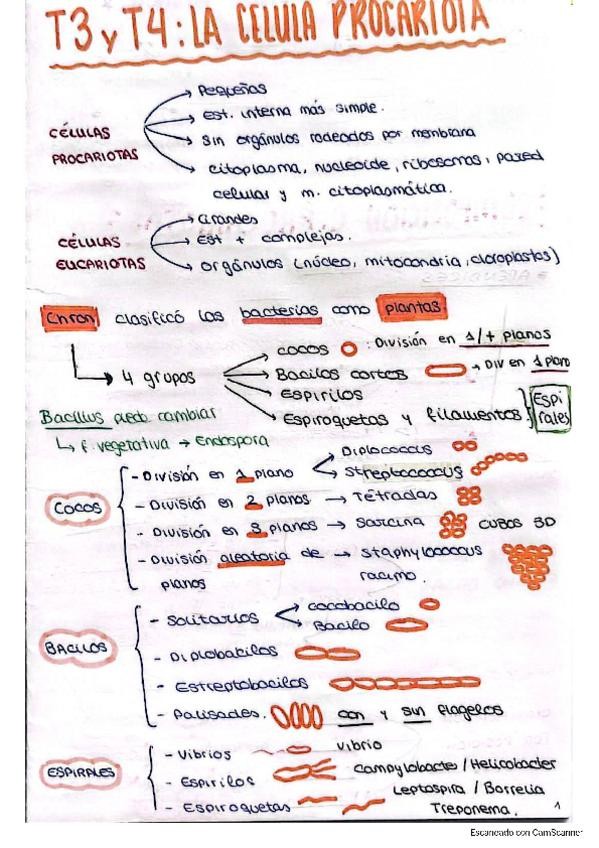 T3 y T4: LA CELULA PROCARIOTA
CÉLULAS PROCARIOTAS
Pequeñas
Est. interna más simple.
Sin orgánulos rodeados por membrana
citoplasma, nucleoide, ribosomas, pared
celular y m. citoplasmática.
CÉLULAS EUCARIOTAS
Grandes
Est + complejas.
orgánulos (núcleo, mitocondria, cloroplastos)
clasificó las bacterias como plantas.
4 grupos
cocos : División en 1/+ planos
Bacilos cortos → Div en 1 plano
Espirilos
Espiroquetas y filamentos
Espirales
Bacillus puede cambiar
f. vegetativa → Endospora
COCOS
- División en 1 plano
Diplococcus
Streptococcus
- División en 2 planos → Tétradas
- División en 3 planos → Sarcina CUBOS 3D
- División aleatoria de → Staphylococcus
planos racimo.
BACILOS
- Solitarios
cocobacilo
Bacilo
- Diplobacilos
- Estreptobacilos
- Palisades. con y sin flagelos
ESPIRALES
- Vibrios vibrio
- Espirilos Campylobacter / Helicobacter
- Espiroquetas Leptospira / Borrelia
Treponema. 1
Escaneado con CamScanner